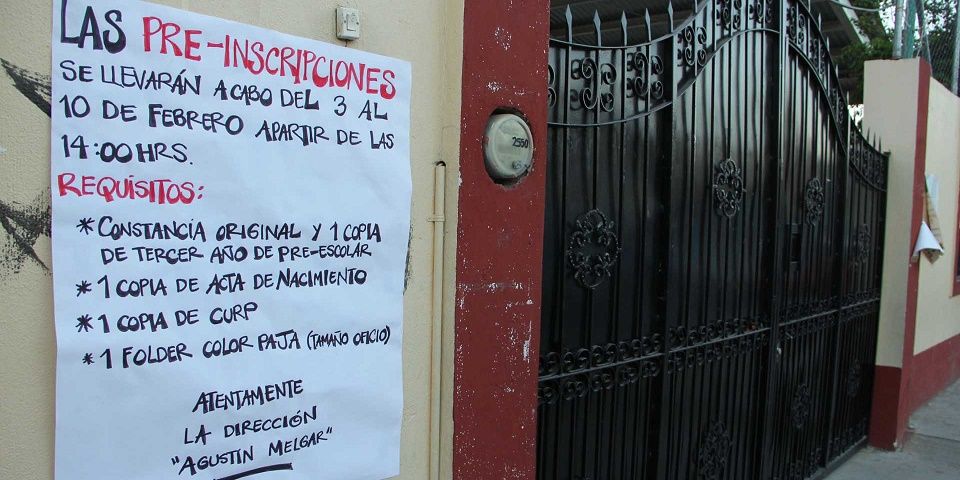 LAS PRE-INSCRIPCIONES
SE LLEVARÁN A CABO DEL 3 AL
10 DE FEBRERO APARTIR DE LAS
14:00 HRS.
REQUÍSITOS:
* CONSTANCÍA ORIGINAL Y 1 COPIA
DE TERCER AÑO DE PRE-ESCOLAR
* 1 COPIA DE ACTA DE NACIMIENTO
* 1 COPIA DE CURP
* 1 FOLDER COLOR PAJA (TAMAÑO OFICIO)
ATENTAMENTE
LA DIRECCIÓN
"AGUSTIN MELGAR"
2550